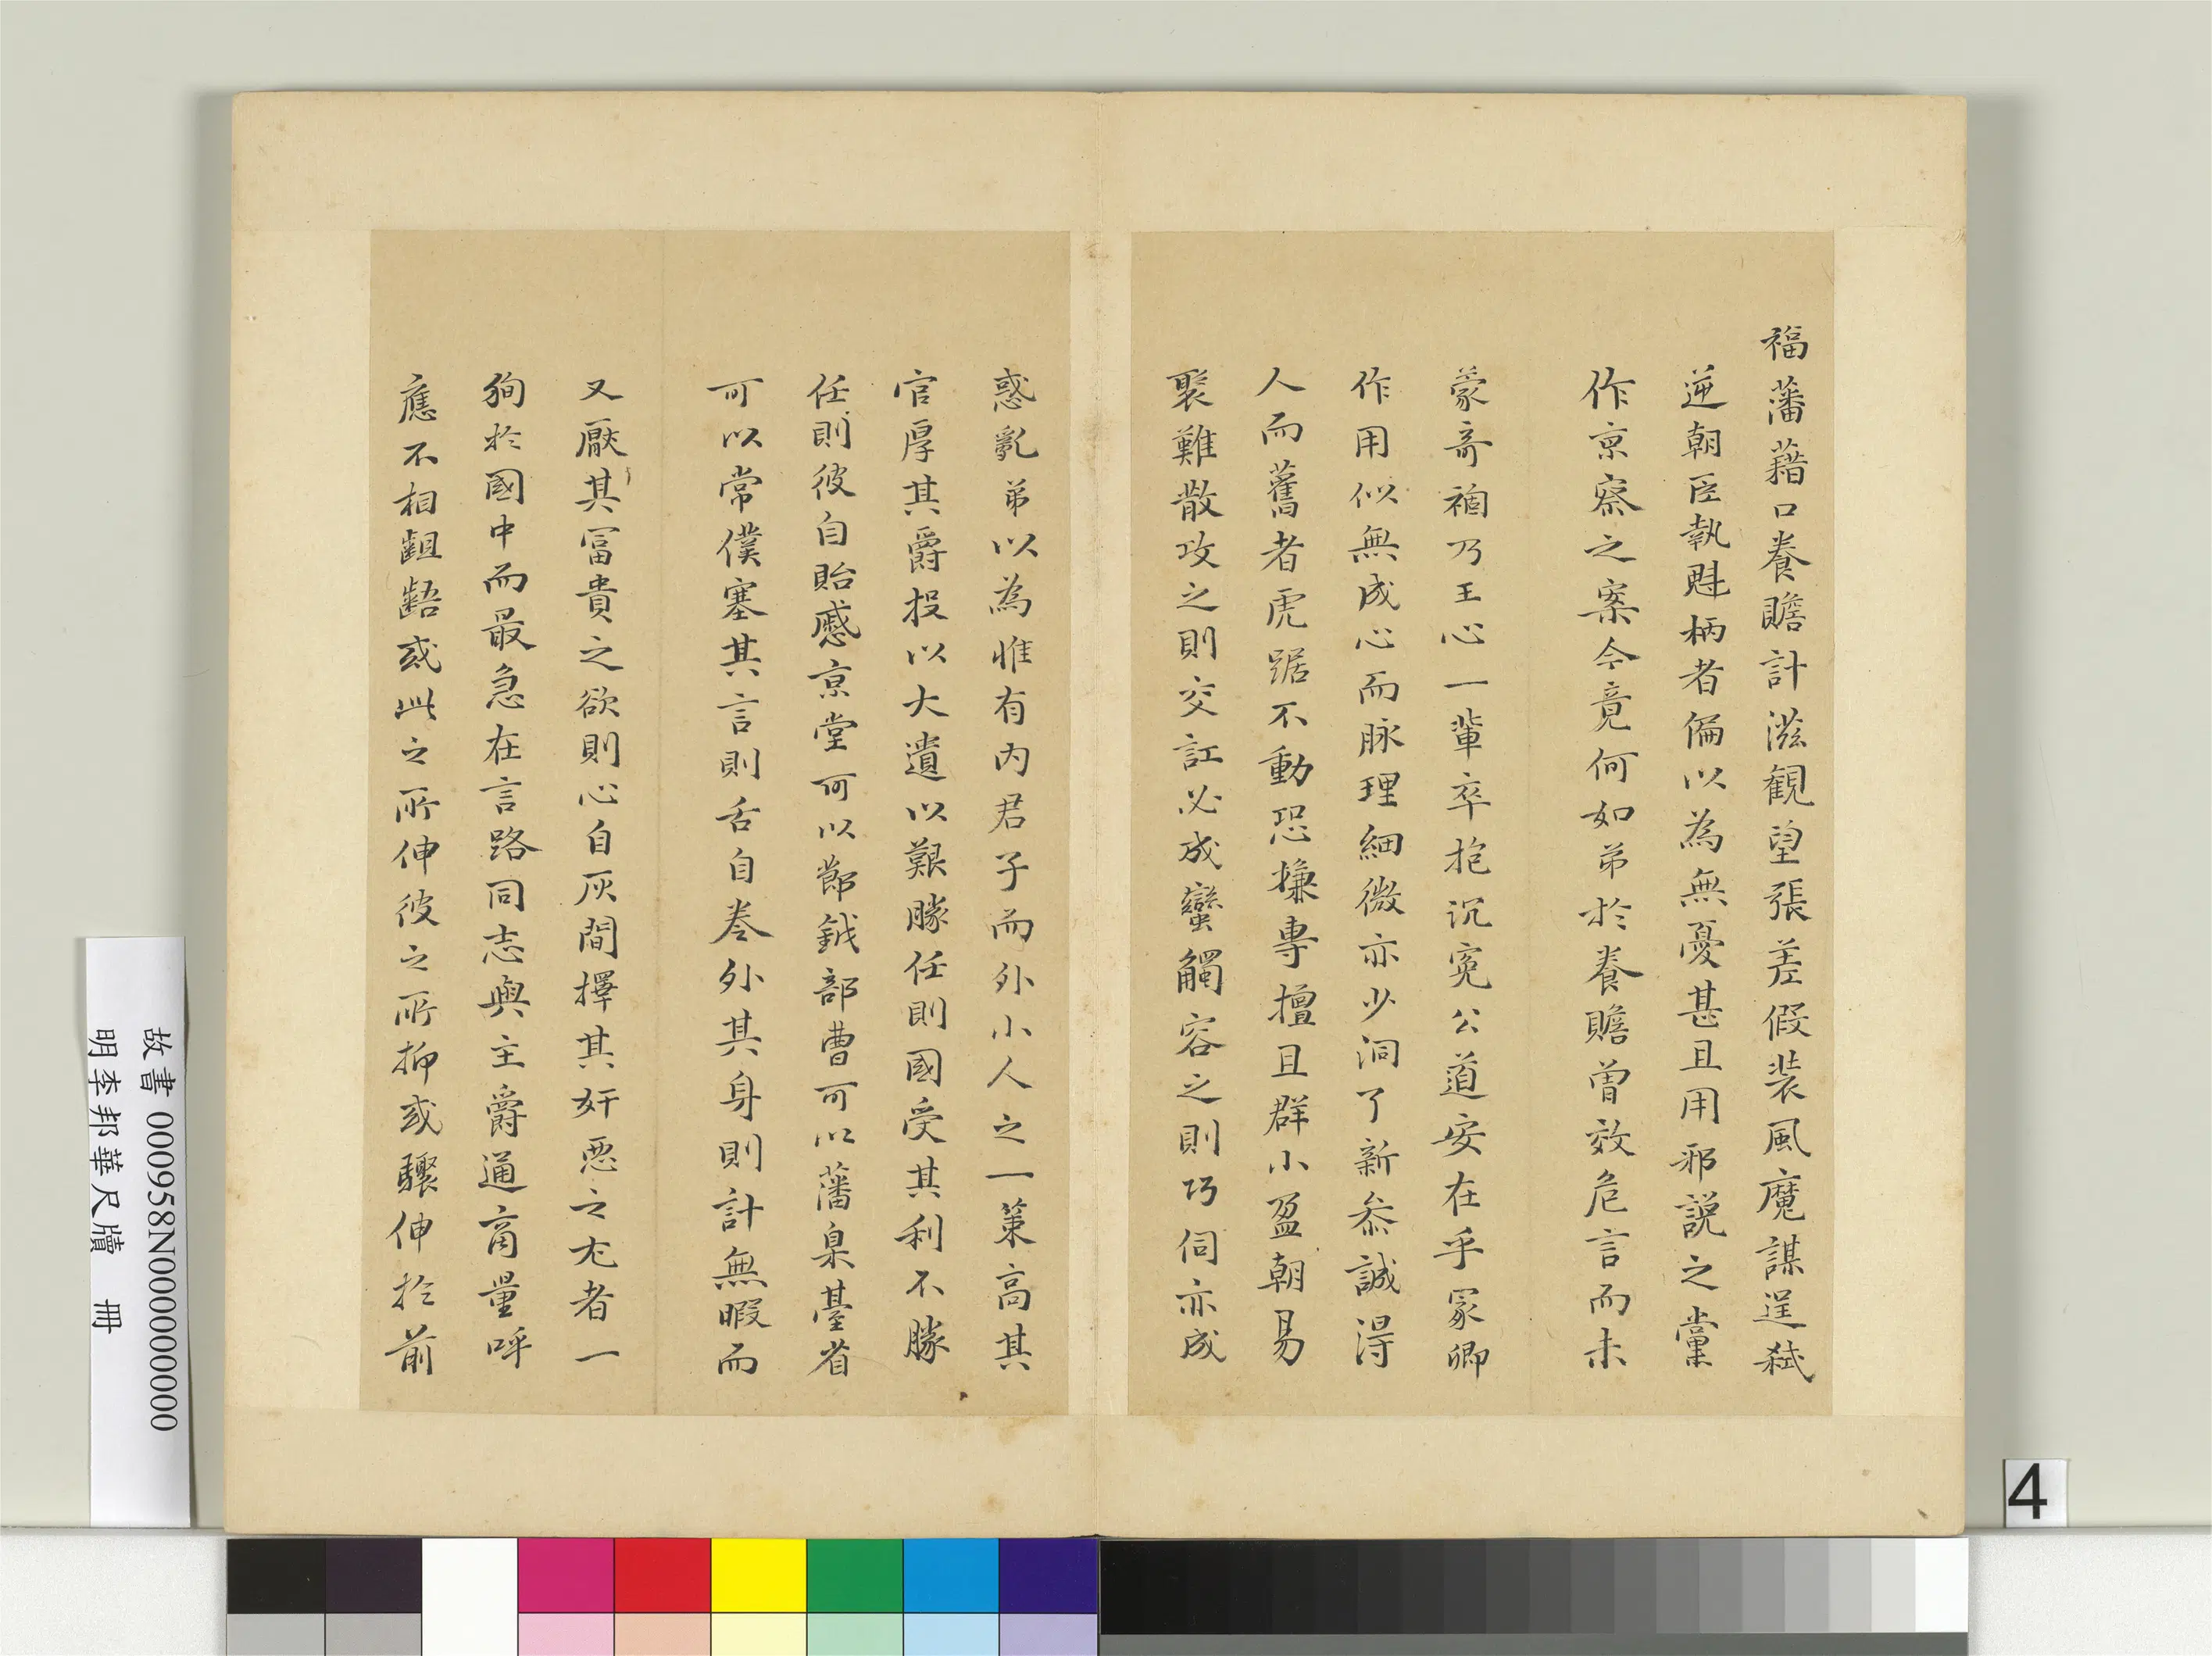 福藩藉口養贍計滋観望張差假裝風魔謀逞弒
逆朝臣執魁柄者偏以為無憂甚且用邪說之黨
作京察之案今竟何如弟於養贍曾效危言而未
蒙奇禍乃王心一輩卒抱沉冤公道安在乎冢卿
作用似無成心而脉理細微亦少洞了新叅誠得
人而舊者虎踞不動恐攈專擅且群小盈朝易
聚難散攻之則交訌必成蠻觸容之則巧伺亦成
惑亂弟以為惟有內君子而外小人之一策高其
官厚其爵投以大遺以艱勝任則國受其利不勝
任則彼自貽慼京堂可以節鉞部曹可以藩臬臺省
可以常僕塞其言則舌自卷外其身則計無暇而
又厭其富貴之欲則心自灰間擇其奸惡之尤者一
狥於國中而最急在言路同志與主爵通商量呼
應不相齟齬或此之所伸彼之所抑或驟伸於前
故書 000958N000000000
明李邦華尺牘 冊
4